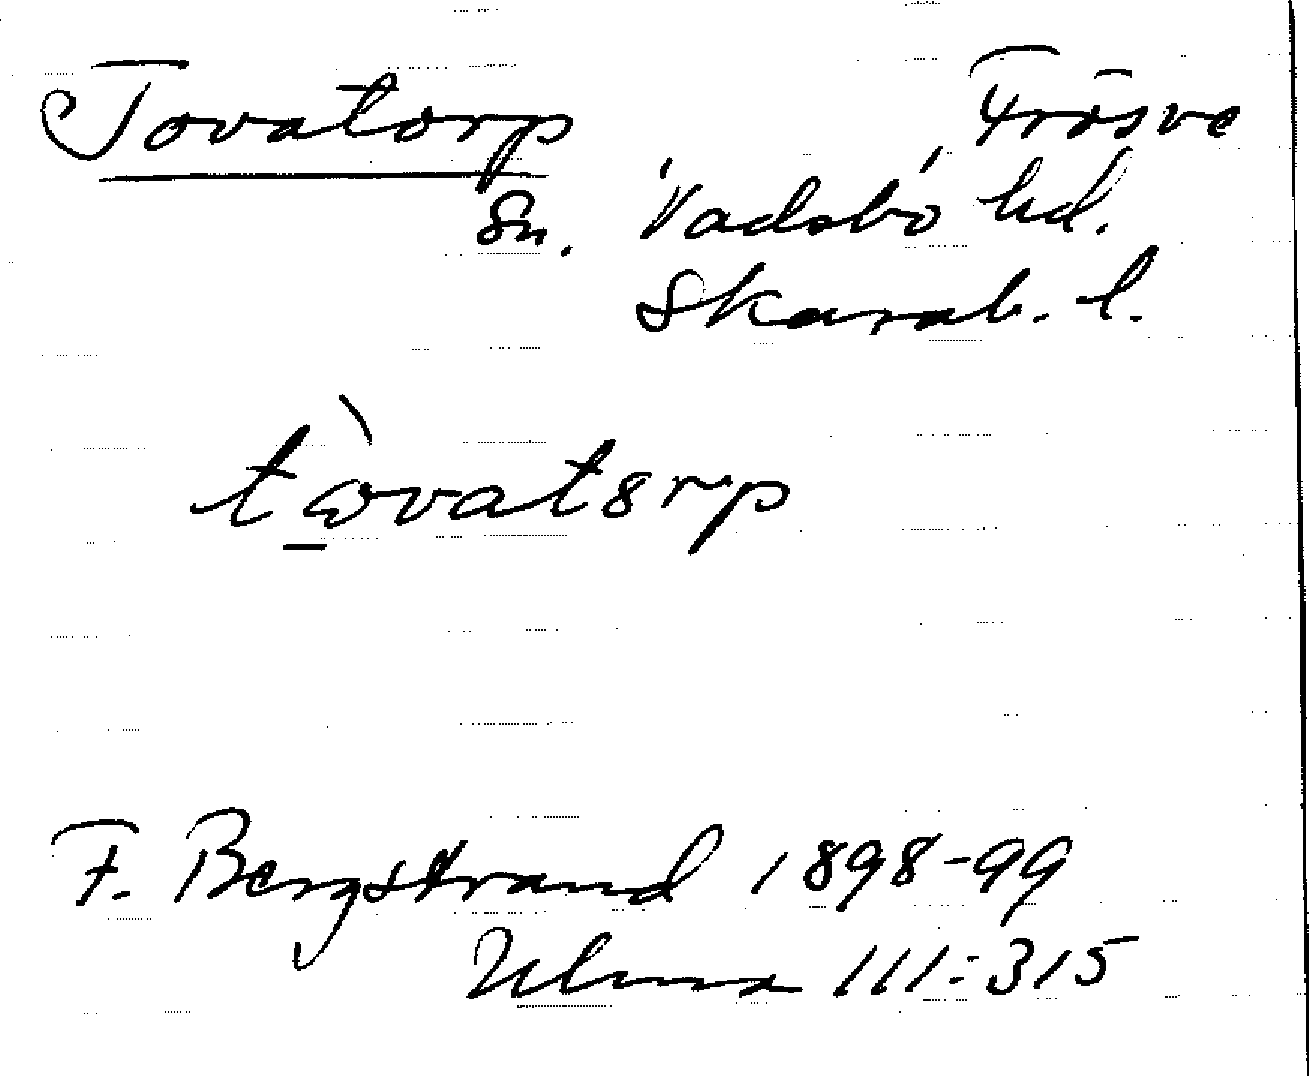 Tovatorp Frösve
Sn. Vadsbo hd.
Skarab. l.
tòvatorp
F. Bergstrand 1898-99
Ulma 111:315